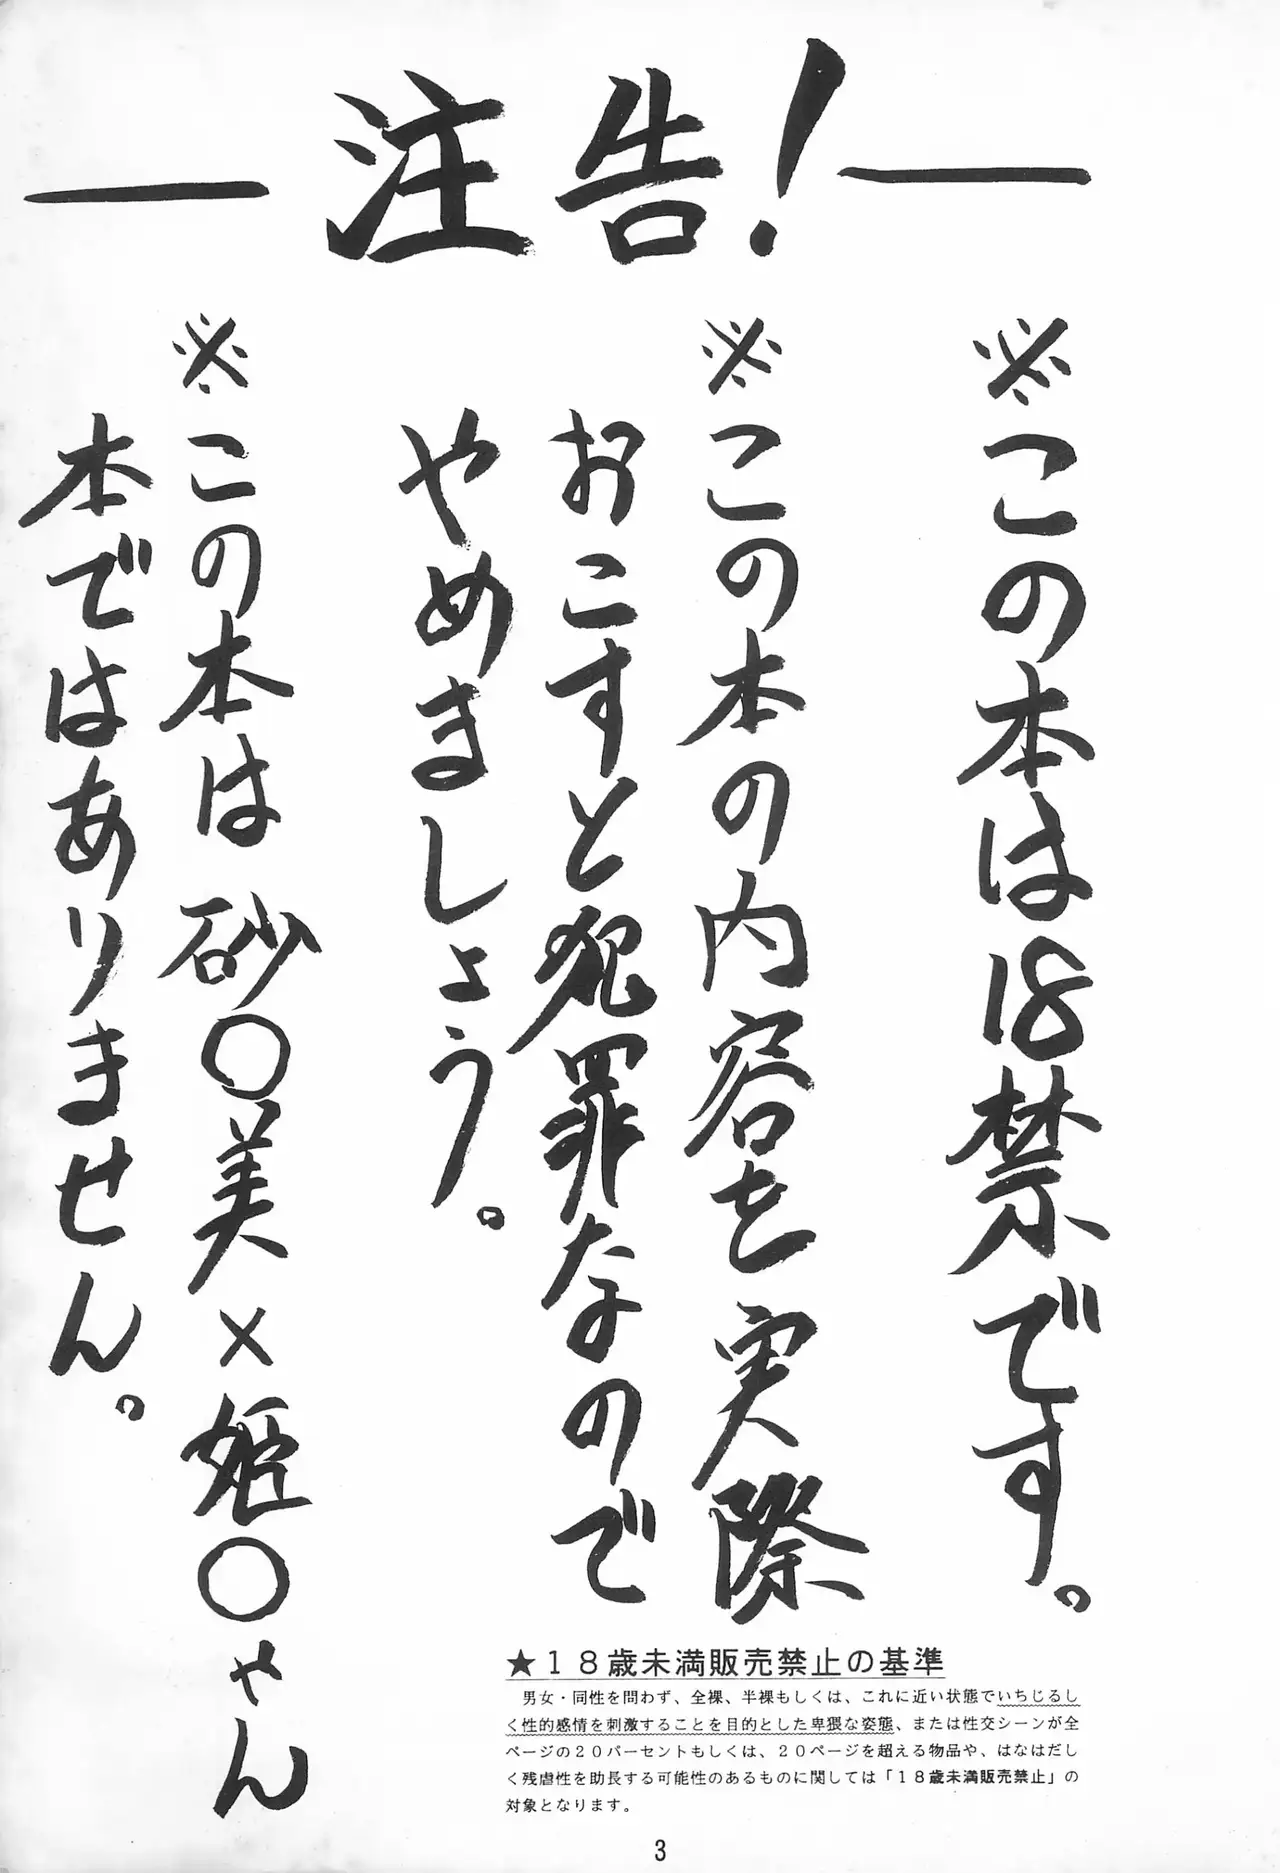 注告!
※この本は18禁です。
※この本の内容を実際
おこすと犯罪なので
やめましょう。
※この本は砂〇美×姫〇ゃん
本ではありません。
★18歳未満販売禁止の基準
男女・同性を問わず、全裸、半裸もしくは、これに近い状態でいちじるし
く性的感情を刺激することを目的とした卑猥な姿態、または性交シーンが全
ページの20パーセントもしくは、20ページを超える物品や、はなはだし
く残虐性を助長する可能性のあるものに関しては「18歳未満販売禁止」の
対象となります。
3